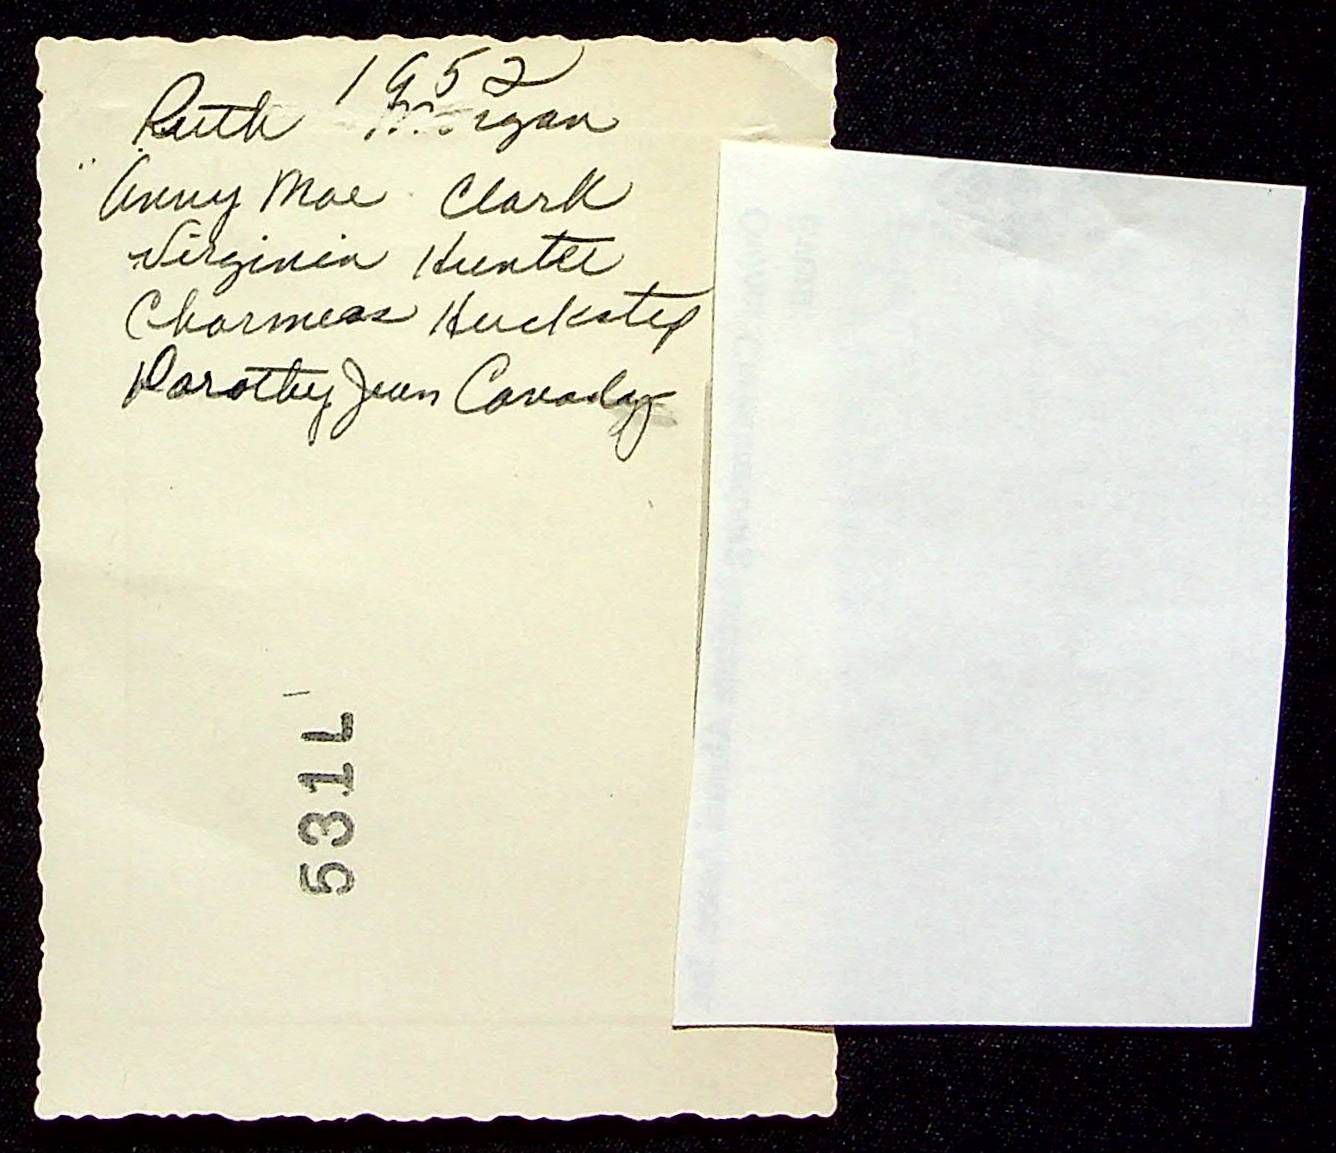 1952
Ruth Morgan
Anny Mae Clark
Virginia Hunter
Charmeas Huckstep
Dorothy Jean Canaday
531L